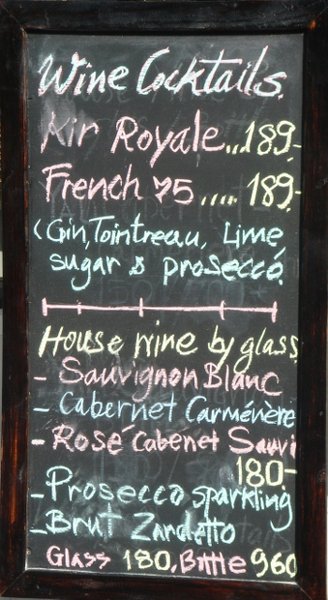 Wine Cocktails.
Kir Royale...189.-
French 75.....189.-
(Gin, Tointreau, Lime,
sugar & prosecco
House wine by glass
- Sauvignon Blanc
- Cabernet Carménère
- Rosé Cabenet Sauvi
180-
- Prosecco sparkling
- Brut Zardetto
Glass 180, Bottle 960